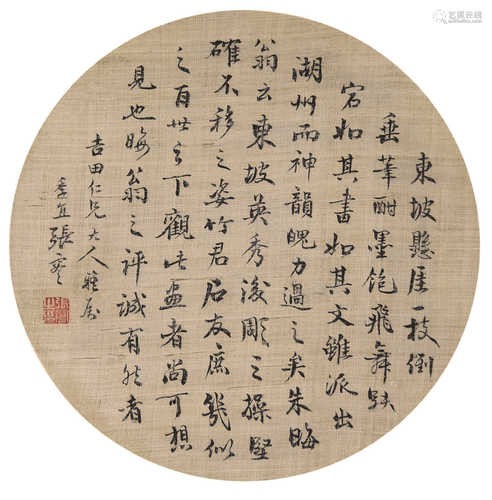 東坡懸崖一枝倒
垂筆酣墨飽飛舞跌
宕如其書如其文雖派出
湖州而神韻魄力過之矣朱晦
翁云東坡英秀後凋之操堅
確不移之姿竹君石友庶幾似
之百世之下觀此畫者尚可想
見也晦翁之評誠有然者
吉田仁兄大人雅屬
張